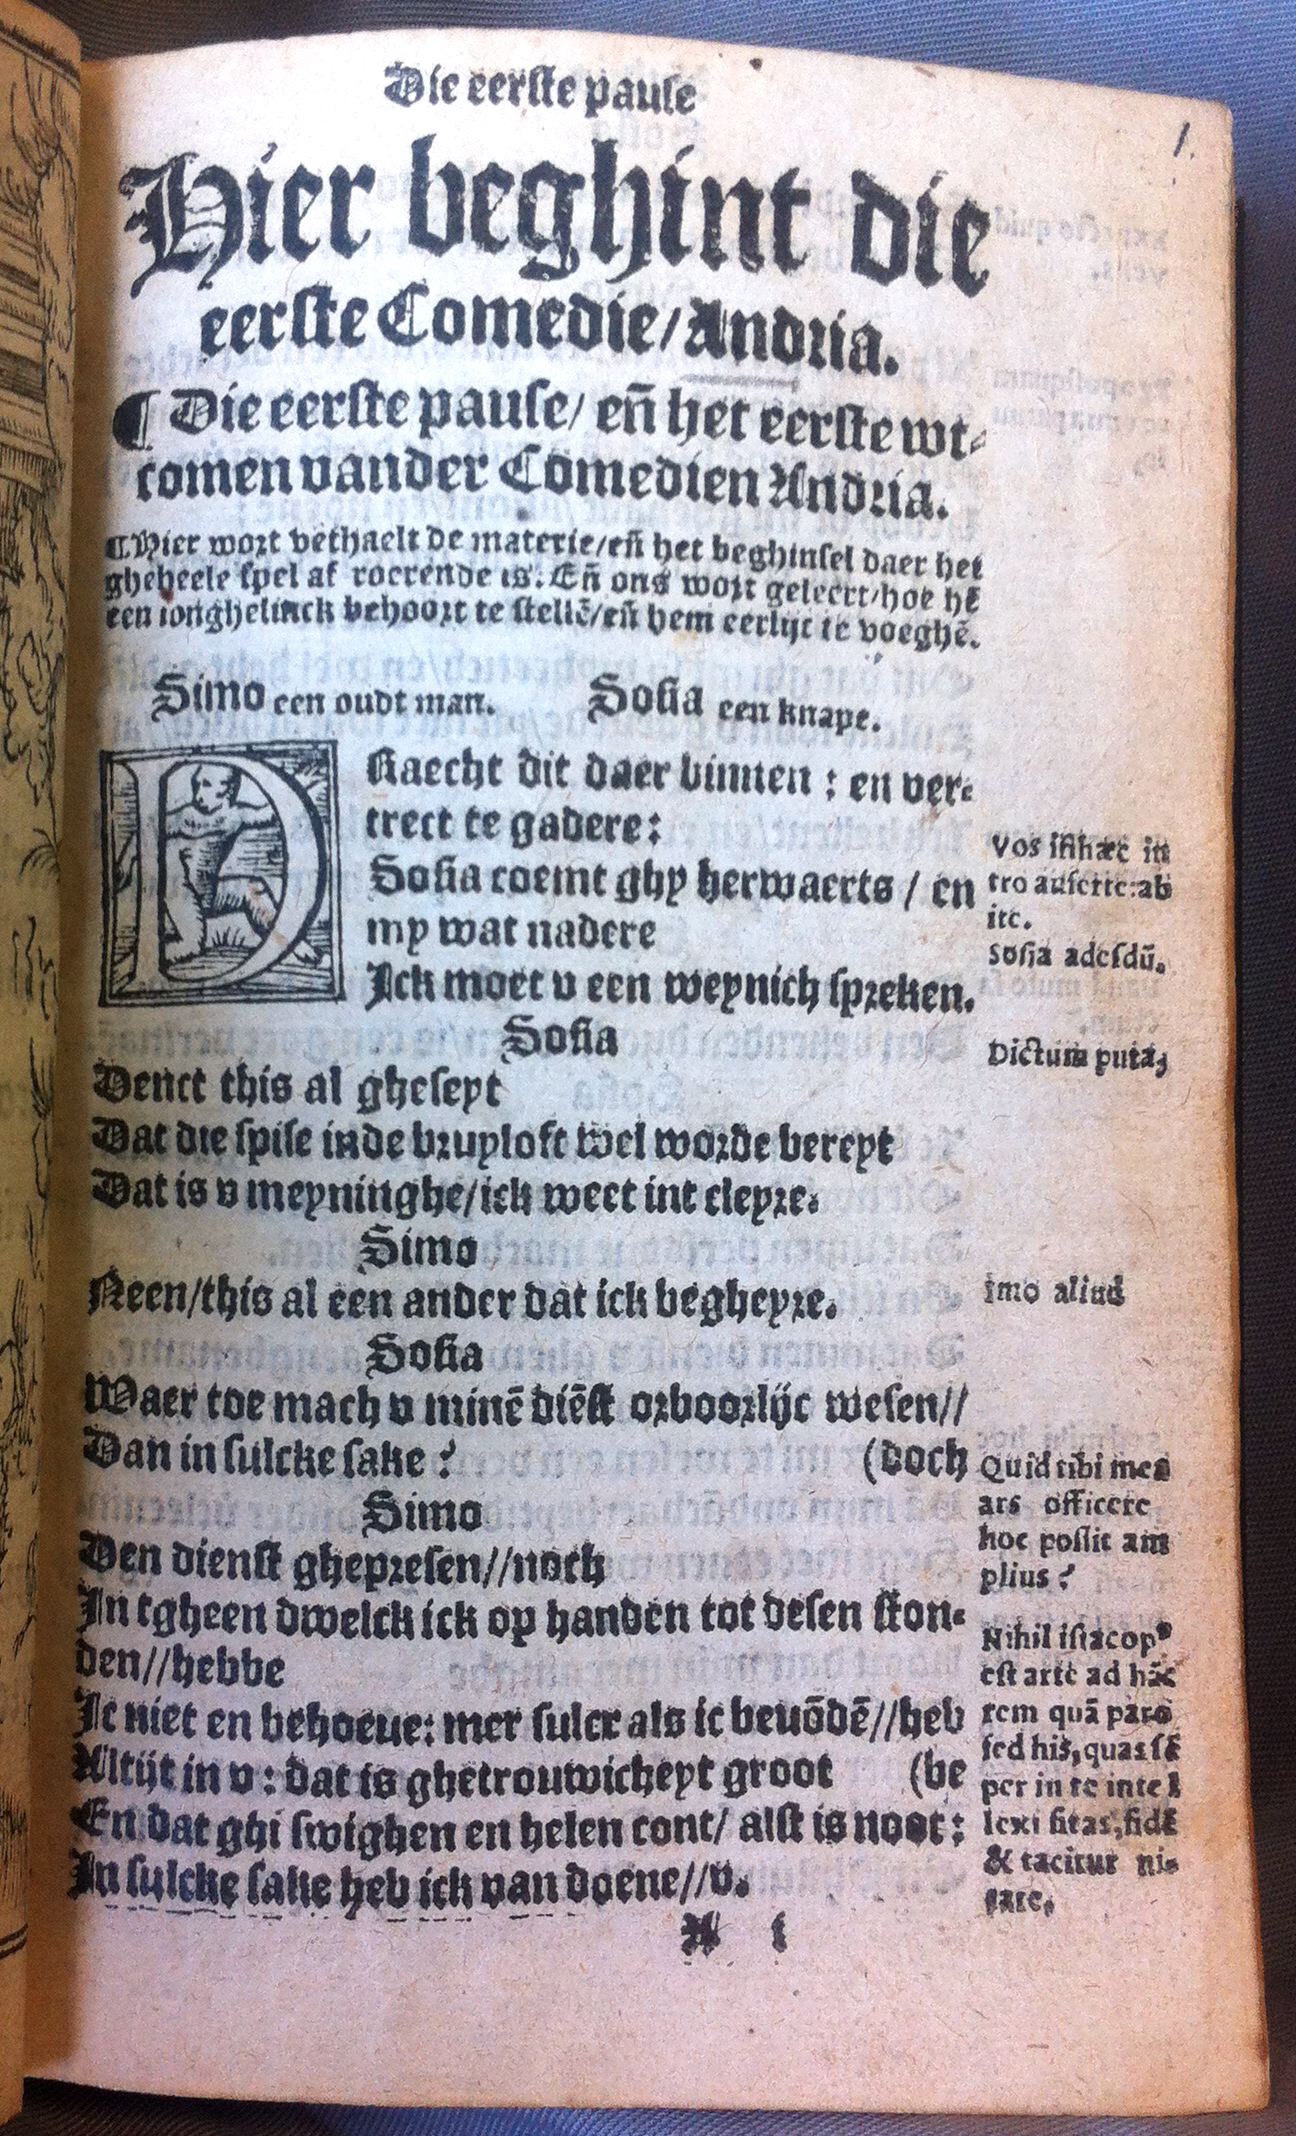 Die eerste pause
1.
Hier beghint die
eerste Comedie/Andria.
¶ Die eerste pause/ eñ het eerste wt-
comen vander Comedien Andria.
¶ Hier wort verhaelt de materie/eñ het beghinsel daer het
gheheele spel af roerende is. Eñ ons wort geleert/hoe hē
een ionghelinck behoort te stellē/eñ hem eerlijc te voeghē.
Simo een oudt man. Sosia een knape.
DRaecht dit daer binnen : en ver-
trect te gadere:
Sosia coemt ghy herwaerts / en
my wat nadere
Ick moet v een weynich spreken.
Sosia
Denct this al gheseyt
Dat die spise inde bruyloft wel worde bereyt
Dat is v meyninghe/ick weet int cleyre.
Simo
Neen/this al een ander dat ick begheyre.
Sosia
Waer toe mach v minē diēst orboorlijc wesen//
Dan in sulcke sake? (doch
Simo
Den dienst ghepresen//noch
In tgheen dwelck ick op handen tot desen ston-
den//hebbe
Ic niet en behoeue: mer sulcr als ic beuōdē//heb
Altijt in v : dat is ghetrouwicheyt groot (be
En dat ghi swighen en helen cont/ alst is noot:
In sulcke sake heb ick van doene//v.
A i
Vos isthæc in
tro auferte:ab
ite.
Sosia adesdū.
Dictum puta,
imo aliud
Quid tibi mea
ars officere
hoc possit am
plius?
Nihil istac opꝰ
est arte ad hāc
rem quā paro
sed his, quas sē
per in te intel
lexi sitas, fidē
& tacitur nis
tate.